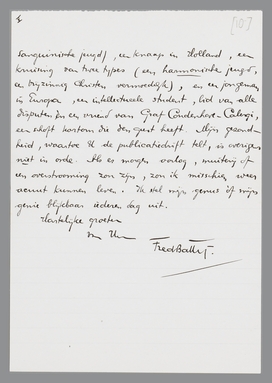 [10]
sanguinische jeugd), een knaap in Holland, een
kruising van twee types (een harmonische jeugd,
een vrijzinnig Christen vermoedelijk), en een jongeman
in Europa, een intellectuele student, lid van alle
disputen en een vriend van Graf Coudenhove-Calergi,
een chef kortom die den geest heeft. Mijn gezond-
heid, waartoe ik de publicatiedrift telt, is overigens
niet in orde. Als er morgen oorlog, muiterij of
een overstrooming zou zijn, zou ik misschien weer
acuut kunnen leven. Ik stel mijn genius of mijn
genie blijkbaar iederen dag uit.
Hartelijke groeten
FredBatten.